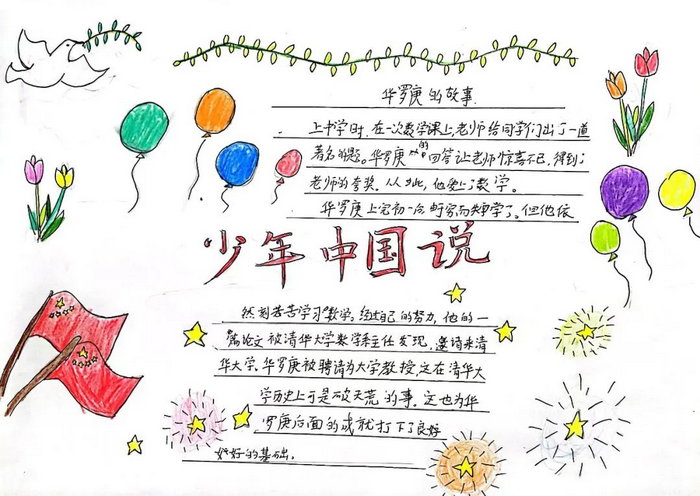 华罗庚的故事
上中学时,在一次数学课上老师给同学们出了一道
著名的题。华罗庚的回答让老师惊喜不已,得到了
老师的夸奖。从此,他爱上了数学。
华罗庚上完初一后,因家贫辍学了。但他依
少年中国说
然刻苦学习数学。经过自己的努力,他的一
篇论文被清华大学数学系主任发现,邀请来清
华大学。华罗庚被聘请为大学教授,这在清华大
学历史上可是破天荒的事。这也为华
罗庚后面的成就打下了良好
的基础。